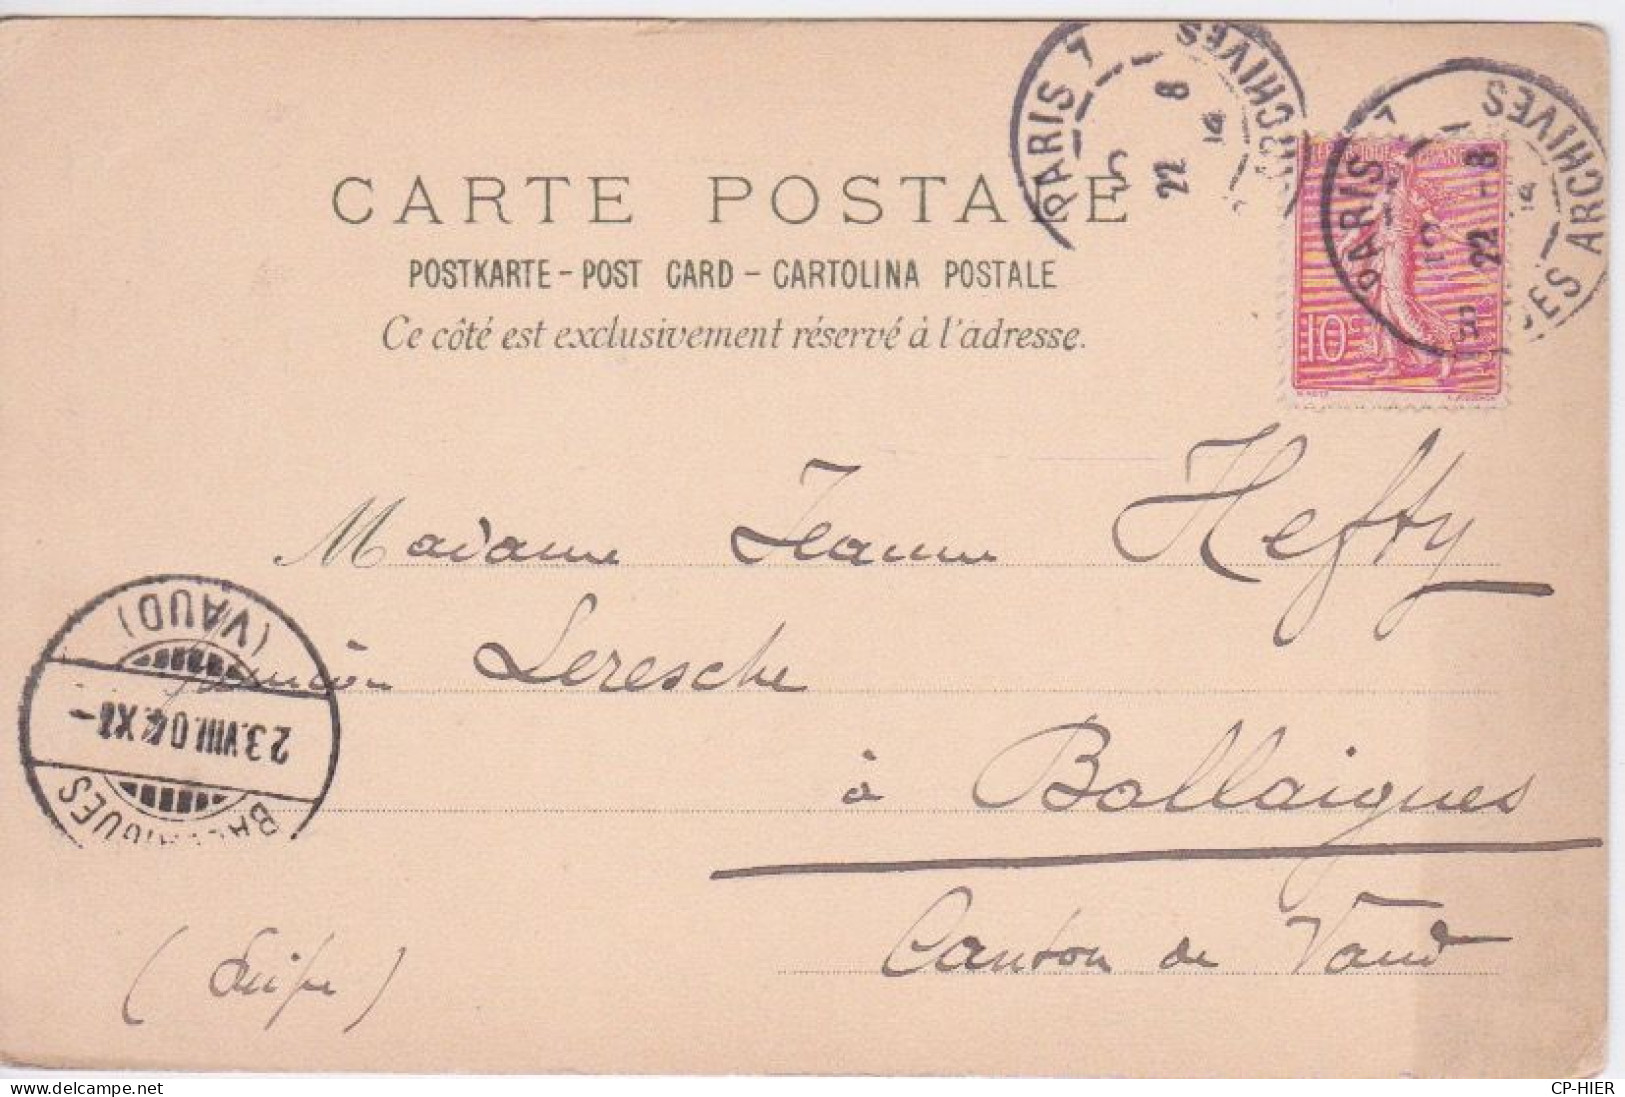 PARIS 7
ARCHIVES
22 8
PARIS 7
ARCHIVES
22 - 8
10c
CARTE POSTALE
POSTKARTE - POST CARD - CARTOLINA POSTALE
Ce côté est exclusivement réservé à l'adresse.
Madame Jeanne Hefty
pension Leresche
à Ballaigues
Canton de Vaud
(Suisse)
(VAUD)
23.VIII.04.XI-
BALLAIGUES
CP-HIER
delcampe.net